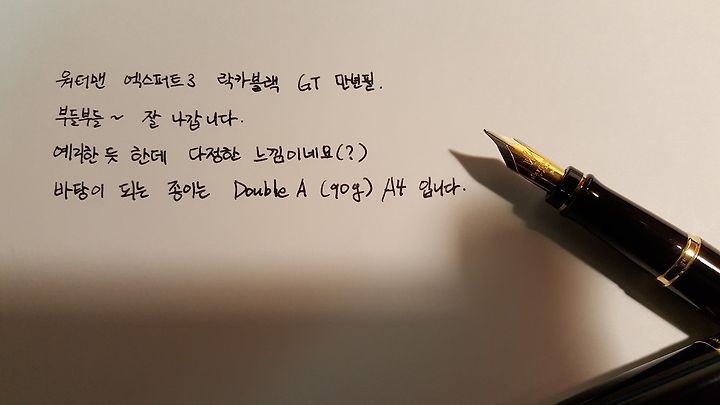 워터맨 엑스퍼트3 락카블랙 GT 만년필.
부들부들~ 잘 나갑니다.
예리한 듯 한데 다정한 느낌이네요(?)
바탕이 되는 종이는 Double A (90g) A4 입니다.